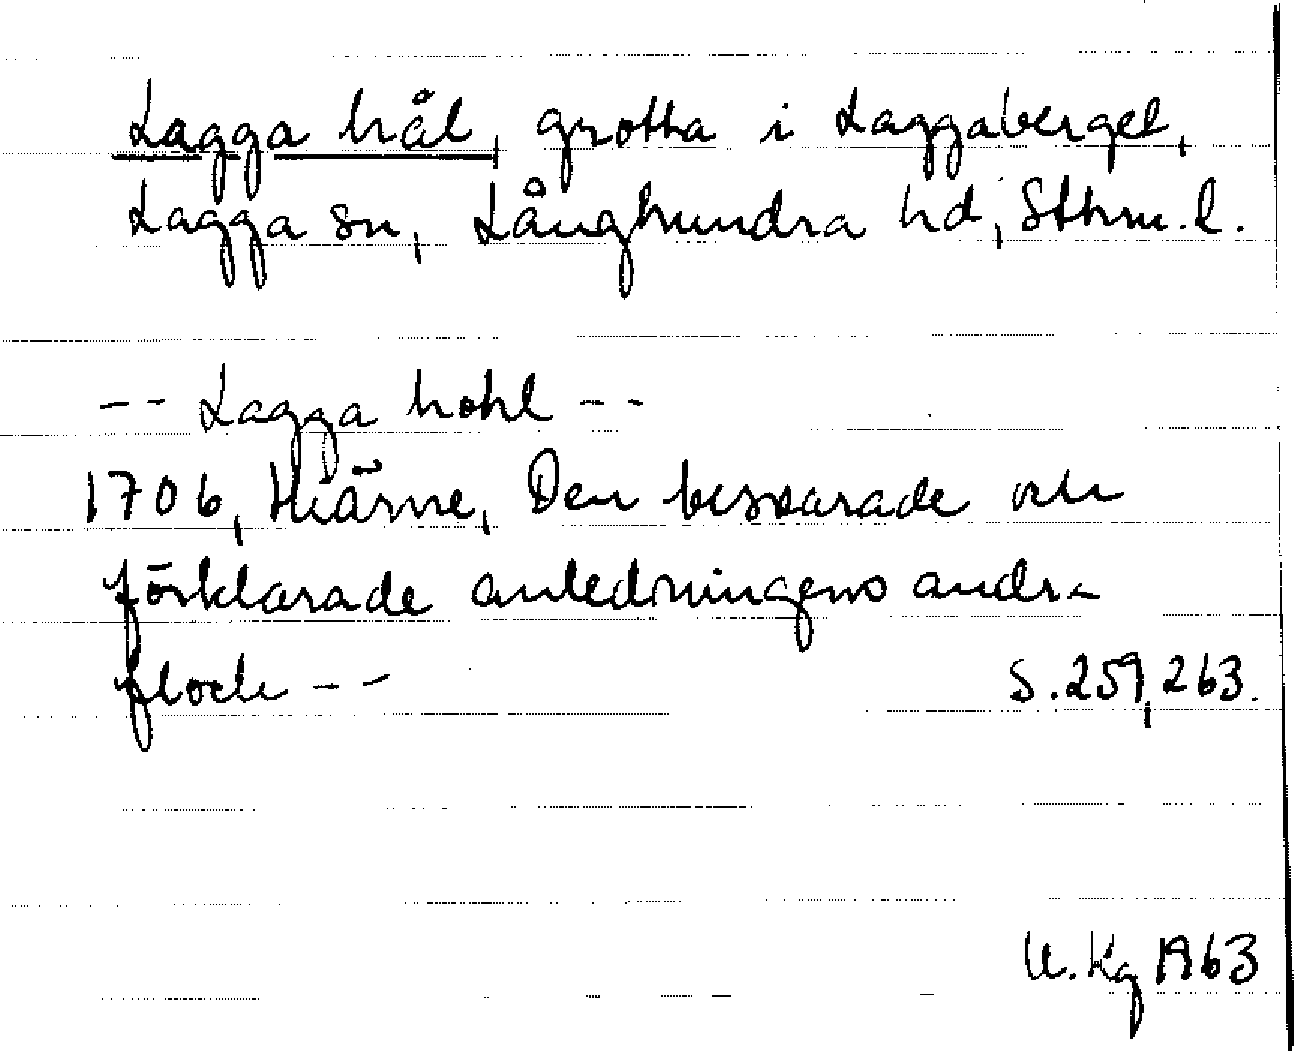 Lagga hål, grotta i Laggaberget,
Lagga sn, Långhundra hd, Sthm. l.
-- Lagga hohl --
1706, Hiärne, Den besvarade och
förklarade anledningens andra
flock -- S. 259, 263.
U. Kg 1963